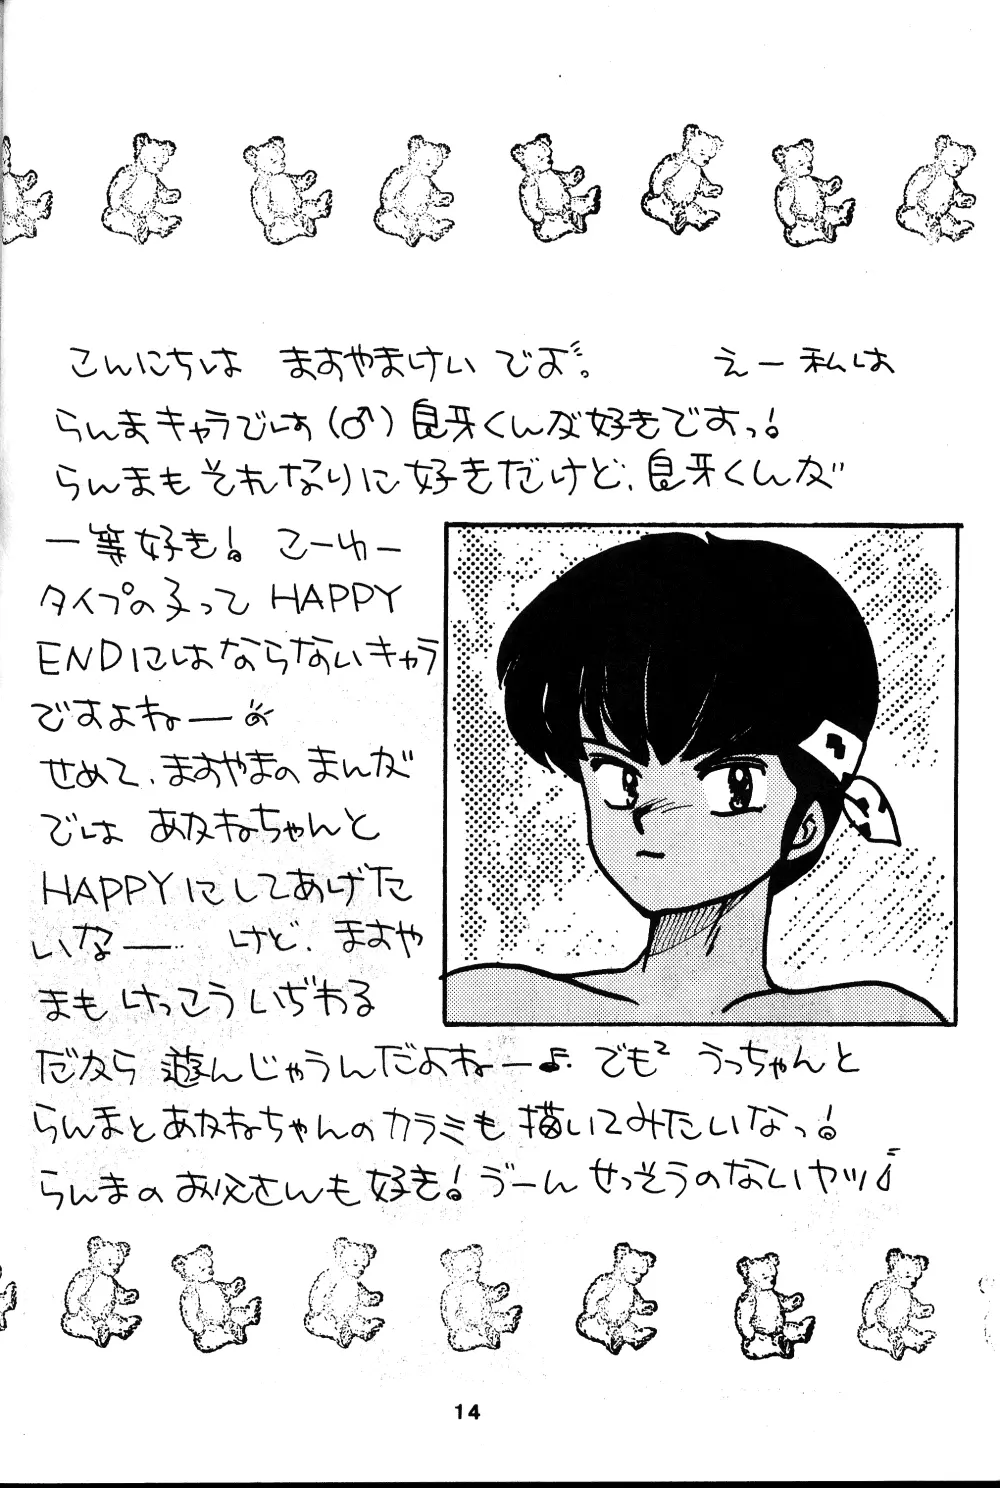 こんにちは ますやまけい でよ。 えー私は
らんまキャラでは(♂)良牙くんが好きですっ!
らんまもそれなりに好きだけど、良牙くんが
一等好き! こーゆー
タイプの子って HAPPY
ENDにはならないキャラ
ですよねー
せめて、ますやまのまんが
では あかねちゃんと
HAPPYにしてあげた
いなー けど、ますや
まも けっこう いぢわる
だから 遊んじゃうんだよねー♪ でも² うっちゃんと
らんまとあかねちゃんのカラミも描いてみたいなっ!
らんまのお父さんも好き! うーん せっそうのないヤツ♪
14